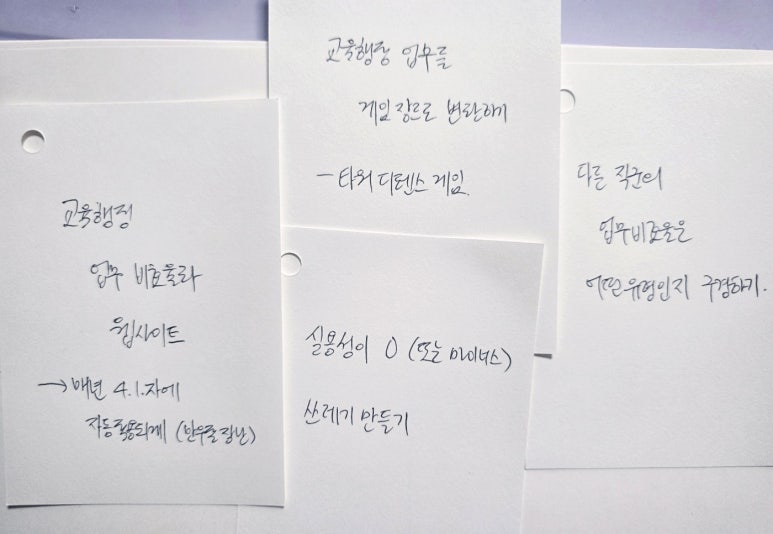 교육행정
업무 비효율화
웹사이트
→ 매년 4.1.자에
자동적용되게 (만우절 장난)
교육행정 업무를
게임 장르로 변환하기
- 타워 디펜스 게임.
실용성이 0 (또는 마이너스)
쓰레기 만들기
다른 직군의
업무비효율은
어떤 유형인지 구경하기.